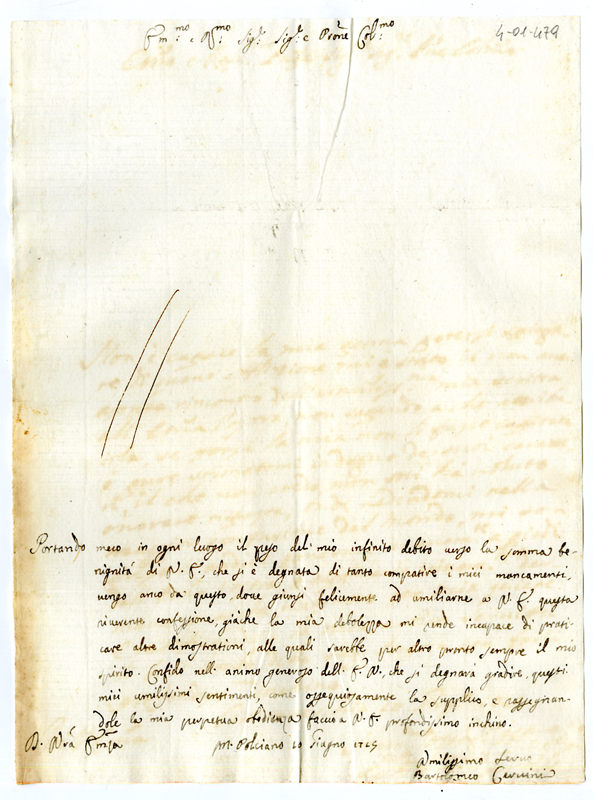 4-01-479
Em:mo e Rmo Sig:r Sig:r e Prõne Col:mo
Portando meco in ogni luogo il peso del mio infinito debito verso la somma be-
nignità di V. E., che si è degnata di tanto compatire i miei mancamenti,
vengo anco da questo, dove giunsi felicemente ad umiliarne a V. E. questa
riverente confessione, giache la mia debolezza mi rende incapace di prati-
care altre dimostrationi, alle quali sarebbe per altro pronto sempre il mio
spirito. Confido nell' animo generoso dell' E. V., che si degnarà gradire questi
miei umilissimi sentimenti, come ossequiosamente la supplico, e rassegnan-
dole la mia perpetua obidienza faccio a V. E. profondissimo inchino.
D. Vrã Emza M. Pulciano 10 Giugno
Umilissimo Servo
Bartolomeo Cervini